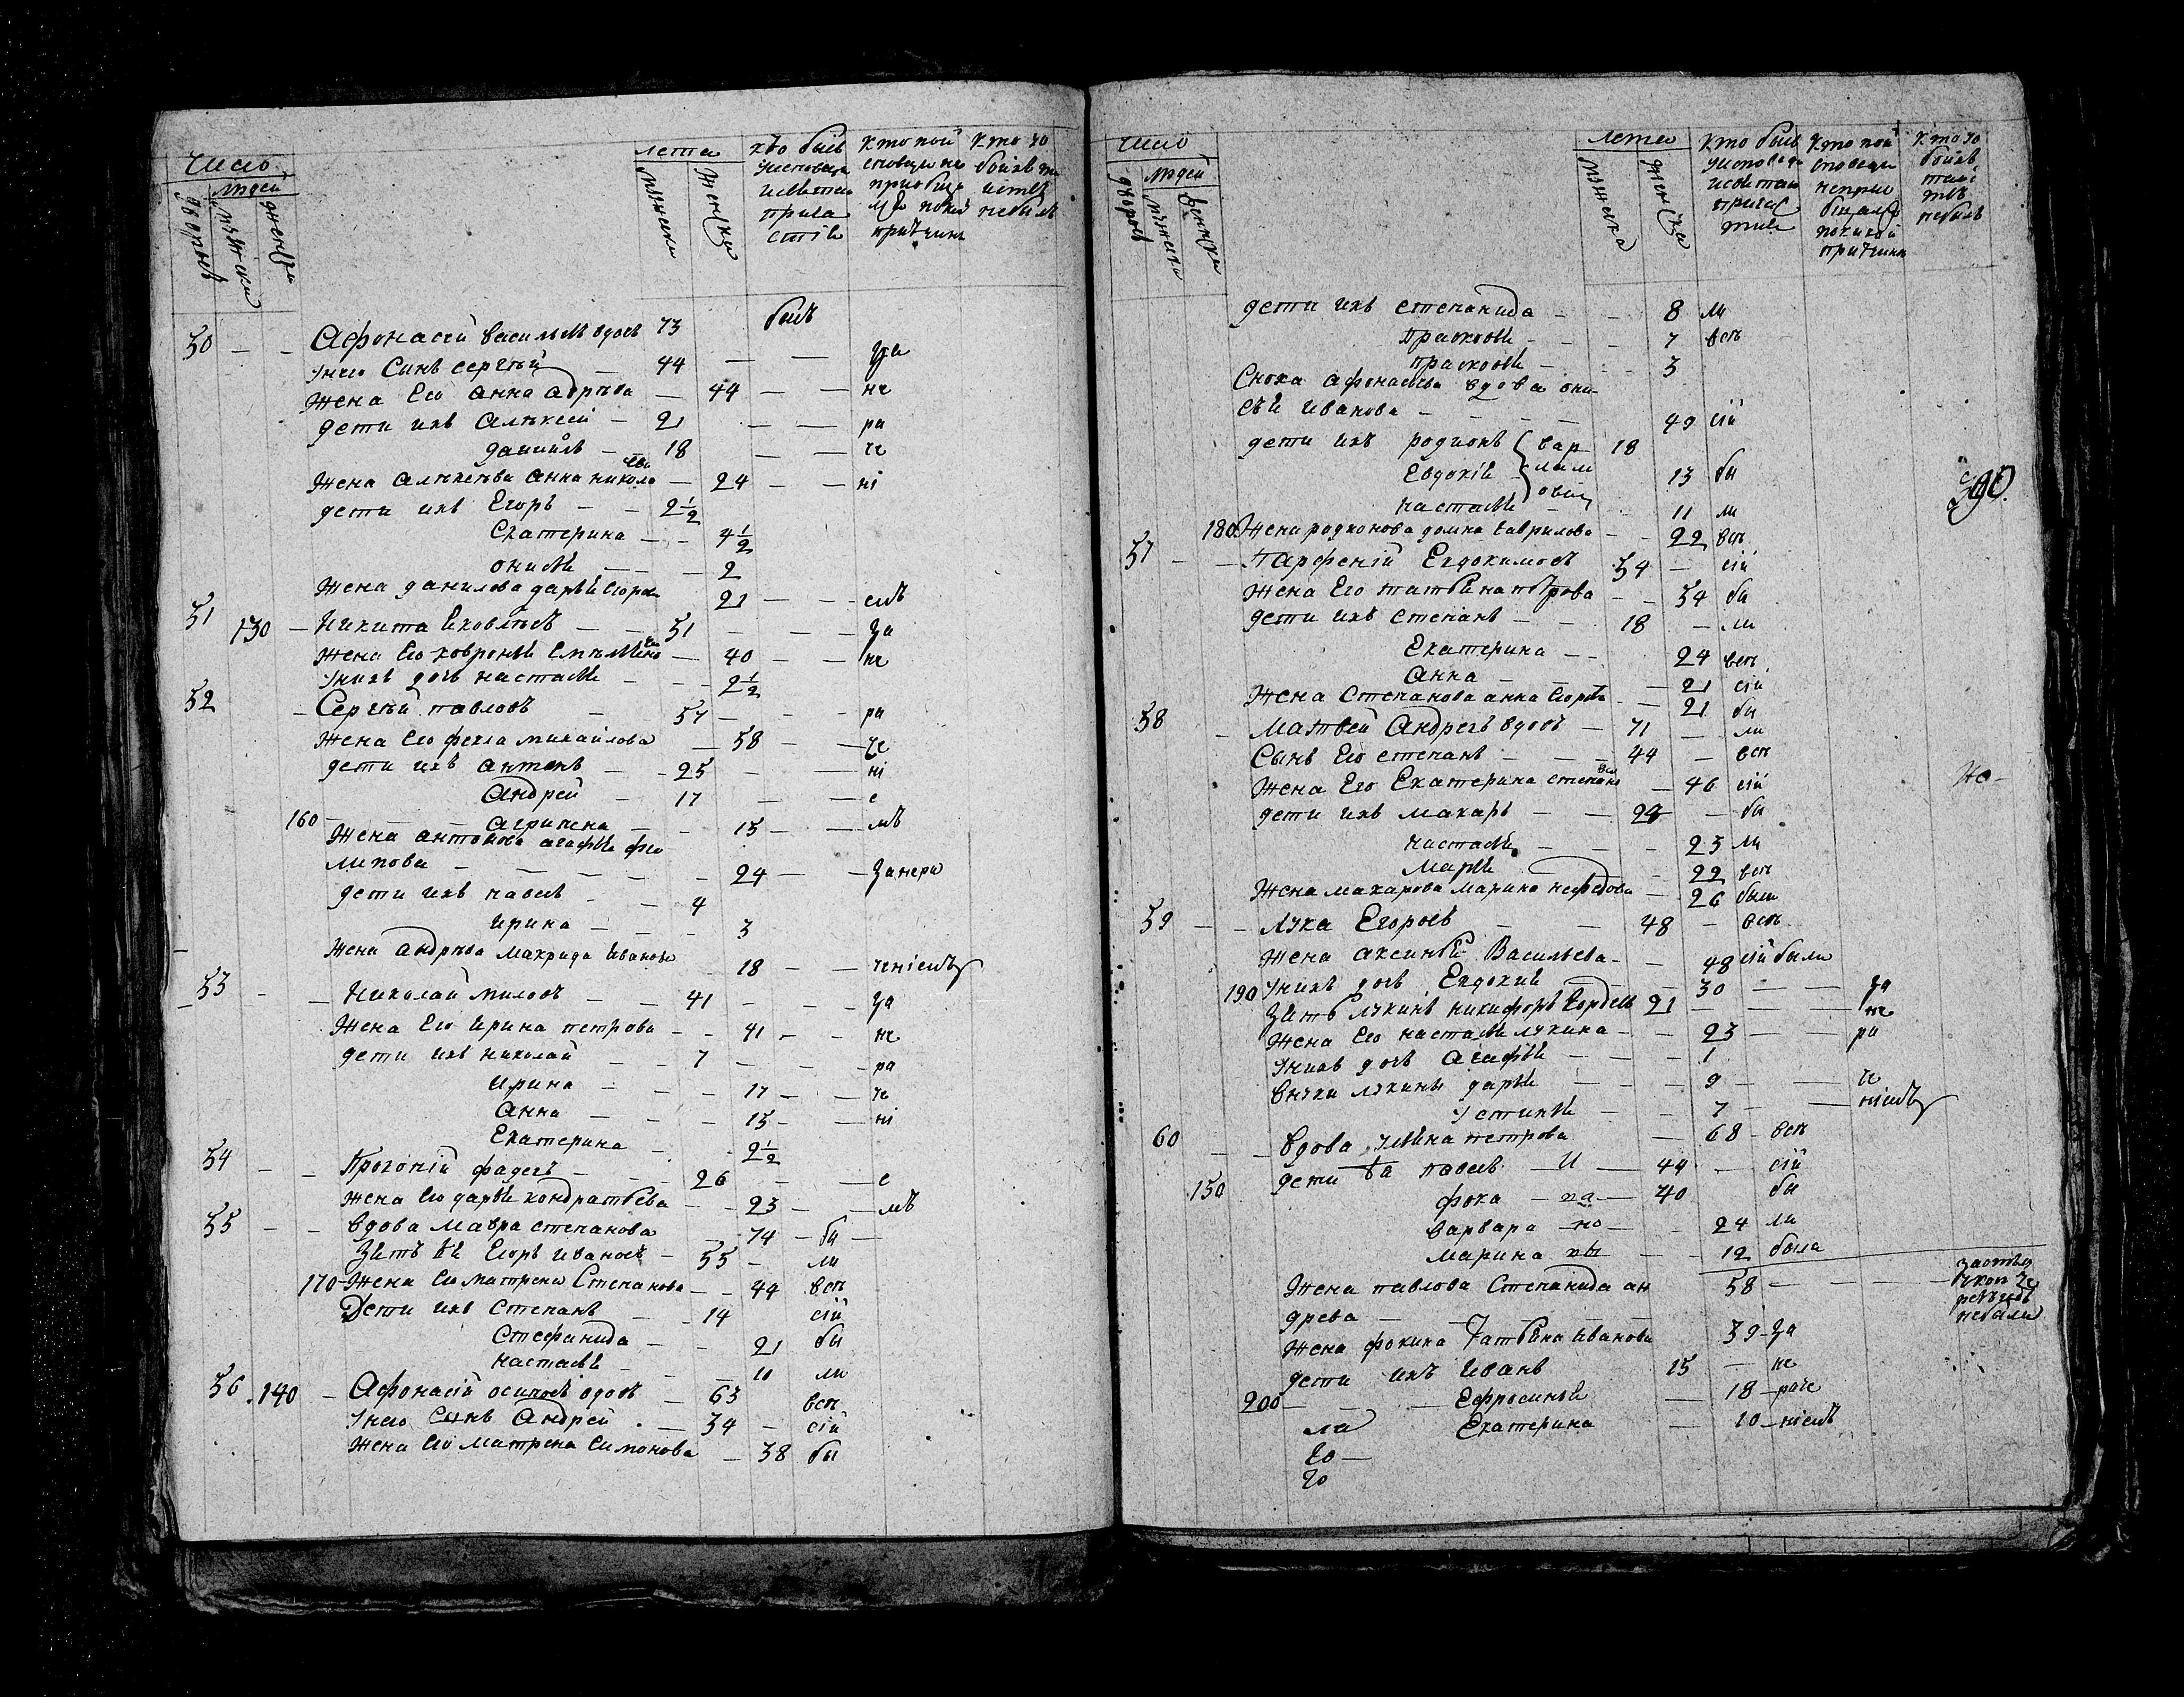 Число
людей
дворовъ
мужеска
женска
лета
мужеска
женска
кто былъ
уисповеди
исвятаго
прича
стія
кто той
споведи не
приобща
лся покой
притчине
кто зо
боихъ та
инствъ
небылъ
50 — — Афонасей Васильевъ вдовъ 73 былъ
унего Сынъ сергѣй — 44 — — за
Жена Его Анна андрѣева — 44 — — не
дети ихъ Алѣксей — 21 — — ра
данийлъ — 18 — — че
Жена алѣксѣева Анна николаева — 24 — — ні
дети ихъ Егоръ — — 2½
Екатерина — — 4½
онисья — — — 2
Жена данилова дарья Егоро 21 — — емъ
51 130 — Никита Яковлевъ — — 51 — — — за
Жена Его ховронья Емельянова — 40 — — не
унихъ дочь настасья — — — 2½
52 — Сергѣй павловъ — 57 — — — ра
Жена Его фекла михайлова — 58 — — че
дети ихъ антонъ — — 25 — — ні
Андрей — 17 — — е
160 — — — агрипена — — 15 — — мъ
Жена антонова агафья фи
липова — — — — — — 24 — — занера
дети ихъ павелъ — — 4
Ирина — — — 3
Жена андрѣева Макрида Иванова 18 — — ченіемъ
53 — — Николай миловъ — — 41 — — — за
Жена Его Ирина петрова — — 41 — — не
дети ихъ николай — — 7 — — — ра
Ирина — — — 17 — — че
Анна — — — 15 — — ні
Екатерина — — 2½
54 — — Прогоній фадеевъ — — 26 — — е
Жена Его дарья кондратьева — — 23 — — мъ
55 — — вдова мавра степанова — 74 — бы —
Зять Ея Егоръ ивановъ — 55 — ли
170 Жена Его матрена Степанова — — 44 вси
Дети ихъ Степанъ — 14 сій
Стефанида — — 21 бы
настасья — — 11 ли
56 140 — Афонасій осиповъ вдовъ — 63 вси
унего Сынъ Андрей — — 34 — сій
Жена Его матрена Симонова — 38 бы
Число
людей
дворовъ
мужеска
женска
лета
мужеска
женска
кто былъ
уисповеди
исвятаго
причас
тия
кто той
споведи
неприо
бщался
покакой
притчине
кто зо
боихъ
таинс
твъ
небылъ
дети ихъ степанида — — 8 ли
Прасковья — — — 7 вси
прасковья — — — 3
Сноха афонасьева вдова они
сья иванова — — — — 49 сій
дети ихъ родионъ вар 18
Евдокія лам 13 бы
настасья овы 11 ли
390.
180 Жена родионова домна гаврилова — — 22 вси
57 — — Парфеній Евдокимовъ 54 — сій
Жена Его татьяна петрова — — 54 бы
дети ихъ степанъ — — 18 — ли
Екатерина — — 24 вси
Анна — — — 21 сій
Жена Степанова анна Егорова — 21 бы
58 — Матвей Андреевъ вдовъ — 71 — ли
Сынъ Его степанъ — — — 44 — вси
Жена Его Екатерина степанова — 46 сій
но —
дети ихъ макаръ — — 24 — бы
настасья — — — 23 ли
марья — 22 вси
Жена макарова марина нефедова — 26 были
59 — — Лука Егоровъ — — 48 — вси
Жена аксинья Васильева — — 48 сій были
190 унихъ дочь Евдокия — — 30 — — за
Зять лукинъ никифоръ 21 — — — не
Жена Его настасья лукина — — 23 — — ра
унихъ дочь агафья — — — 1
внуки лукины дарья — — — 9 — — че
устинья — — 7 — — ніемъ
60 — — вдова улияна петрова — 68 — вси
дети Ея павелъ — И — 44 — сій
150 фока — па — 40 бы
варвара — но — 24 ли
марина — вы — — 12 была
Жена павлова Степанида ан 58 — — —
древа — — — — — —
небыла
Жена фокина Татьяна иванова 39 — за
дети ихъ Иванъ 15 — не
200 — — — Ефросинья — 18 — раче
ла Екатерина — 10 — ніемъ
20 —
20